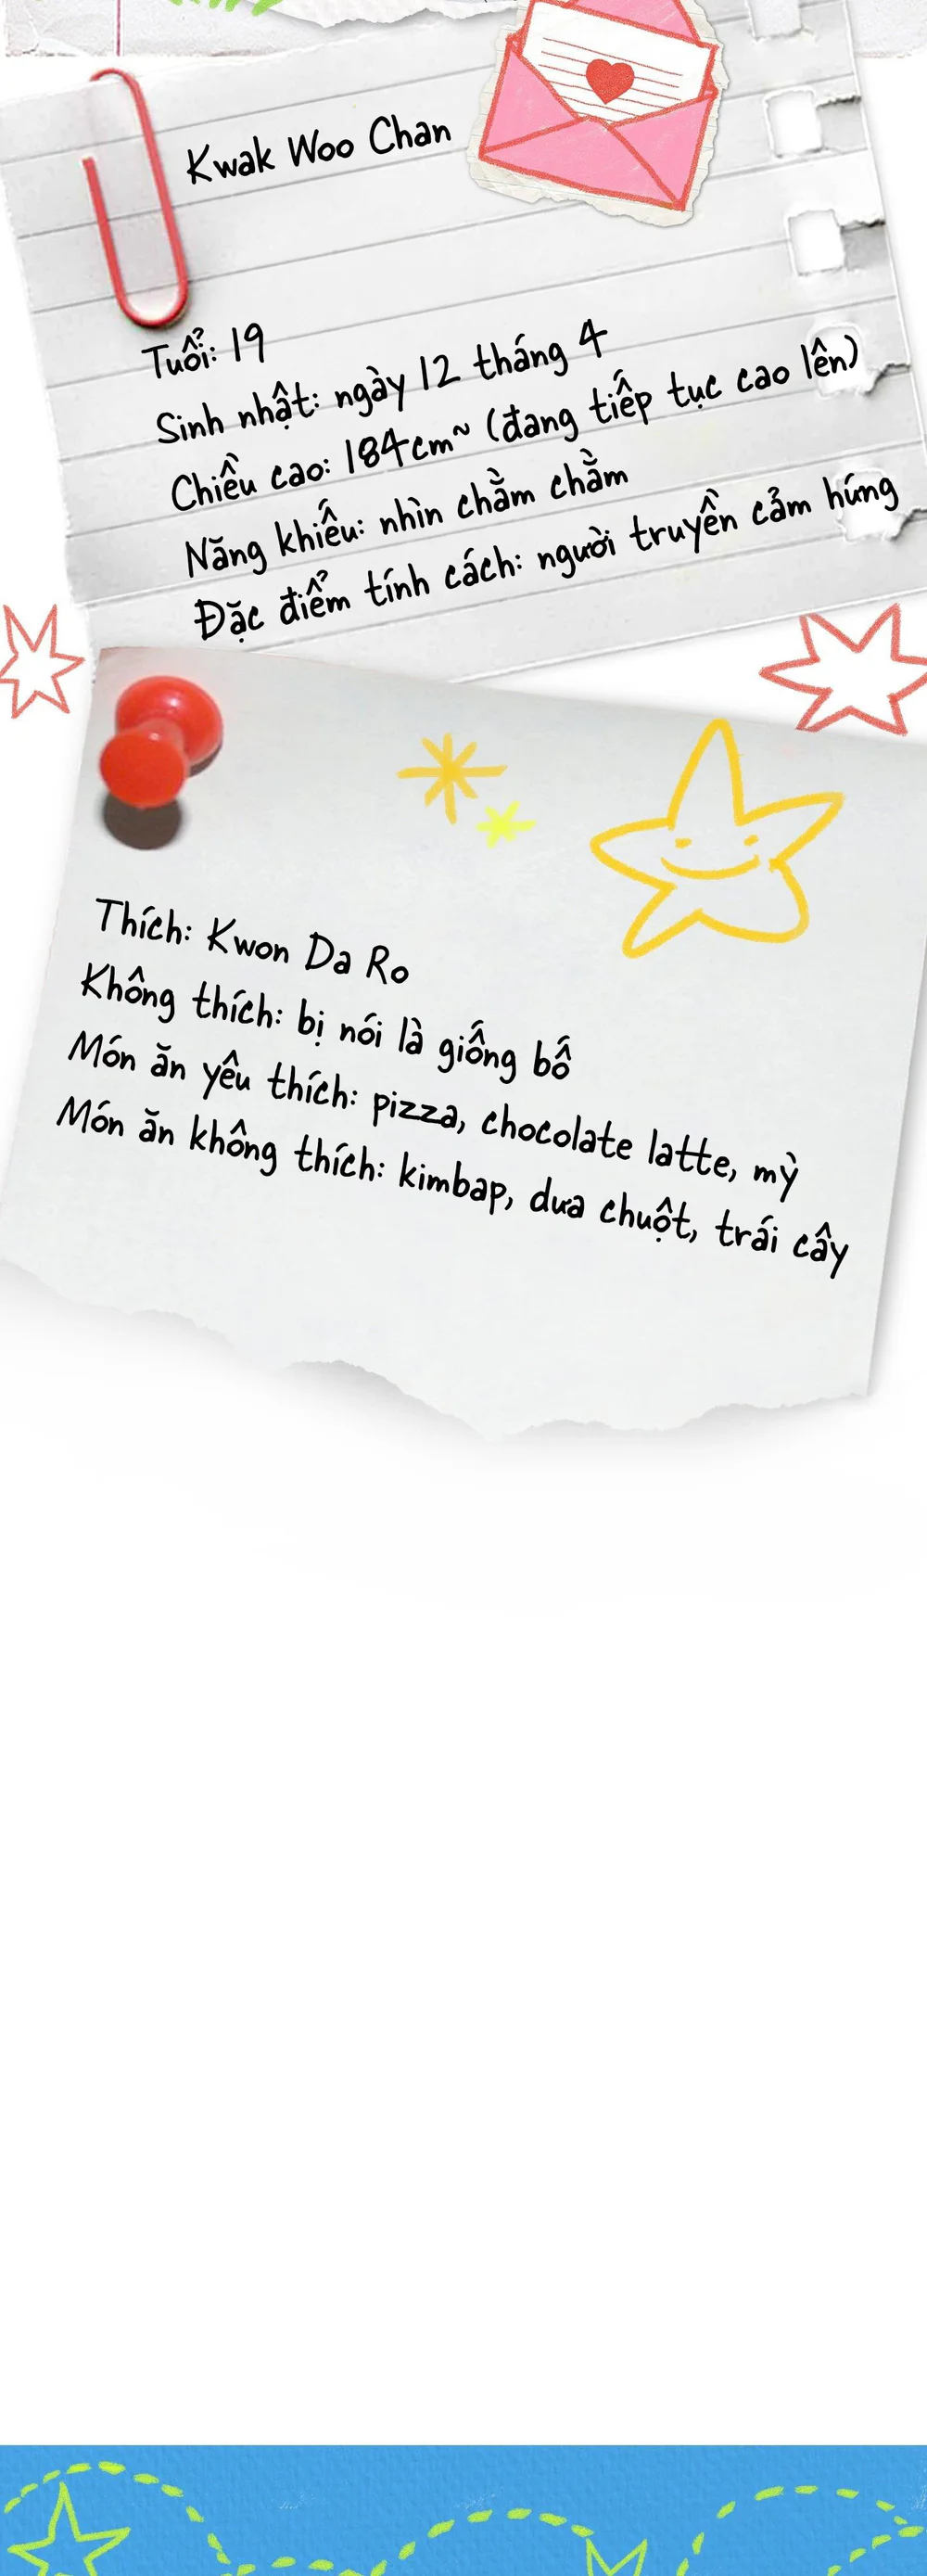 Kwak Woo Chan
Tuổi: 19
Sinh nhật: ngày 12 tháng 4
Chiều cao: 184cm~ (đang tiếp tục cao lên)
Năng khiếu: nhìn chằm chằm
Đặc điểm tính cách: người truyền cảm hứng
Thích: Kwon Da Ro
Không thích: bị nói là giống bố
Món ăn yêu thích: pizza, chocolate latte, mỳ
Món ăn không thích: kimbap, dưa chuột, trái cây